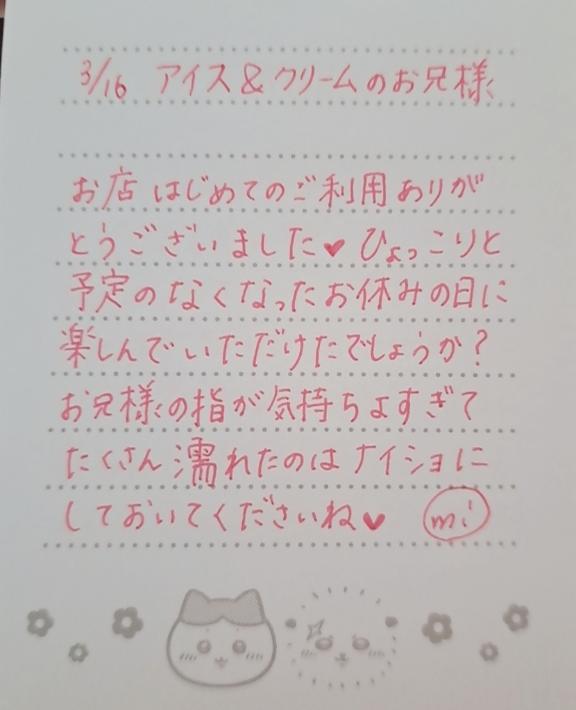 3/16 アイス&クリームのお兄様
お店はじめてのご利用ありが
とうございました♥ ひょっこりと
予定のなくなったお休みの日に
楽しんでいただけたでしょうか?
お兄様の指が気持ちよすぎて
たくさん濡れたのはナイショに
しておいてくださいね♥ mi